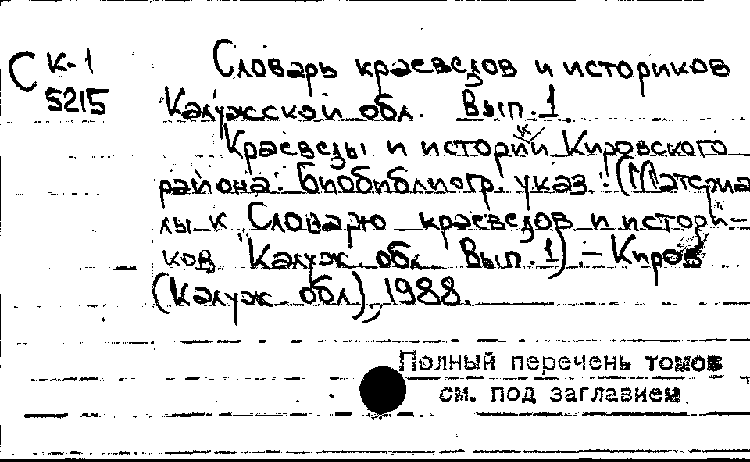 С К-1
5215
Словарь краеведов и историков
Калужской обл. Вып. 1.
Краеведы и историки Кировского
района: Биобиблиогр. указ.: (Материа
лы к Словарю краеведов и истори-
ков Калуж. обл. Вып. 1). – Киров
(Калуж. обл.), 1988.
Полный перечень томов
см. под заглавием